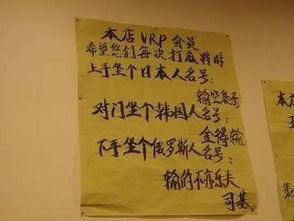 本店VRP会员
希望您们每次打麻将时
上手坐个日本人名号:
输空裤子
对门坐个韩国人名号:
金得输
下手坐个俄罗斯人名号:
输的不亦乐夫
司基